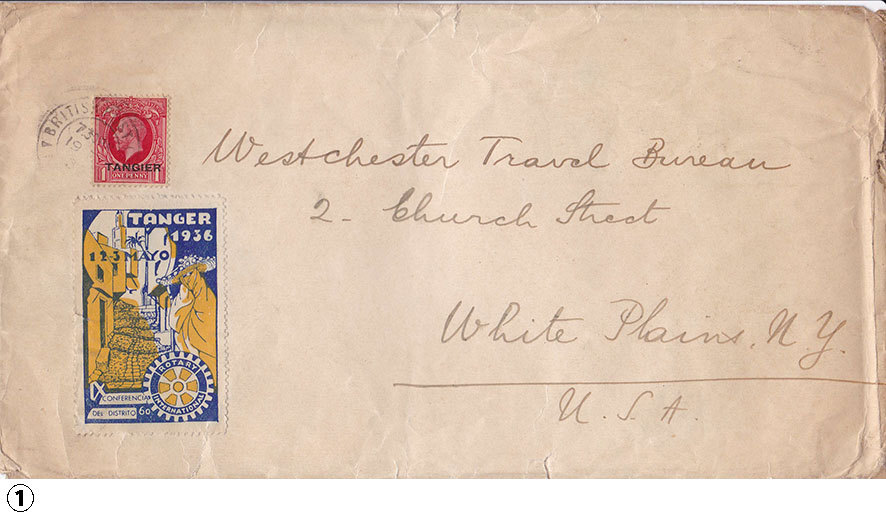 BRITISH
TANGIER
1 ONE PENNY 1
TANGER
1936
1 2 3 MAYO
ROTARY
INTERNATIONAL
IX CONFERENCIA
DEL DISTRITO 60
Westchester Travel Bureau
2 - Church Street
White Plains, N.Y.
U. S. A.
1